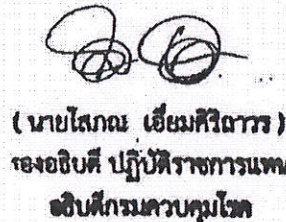 ( นายโสภณ เอี่ยมศิริถาวร )
รองอธิบดี ปฏิบัติราชการแทน
อธิบดีกรมควบคุมโรค